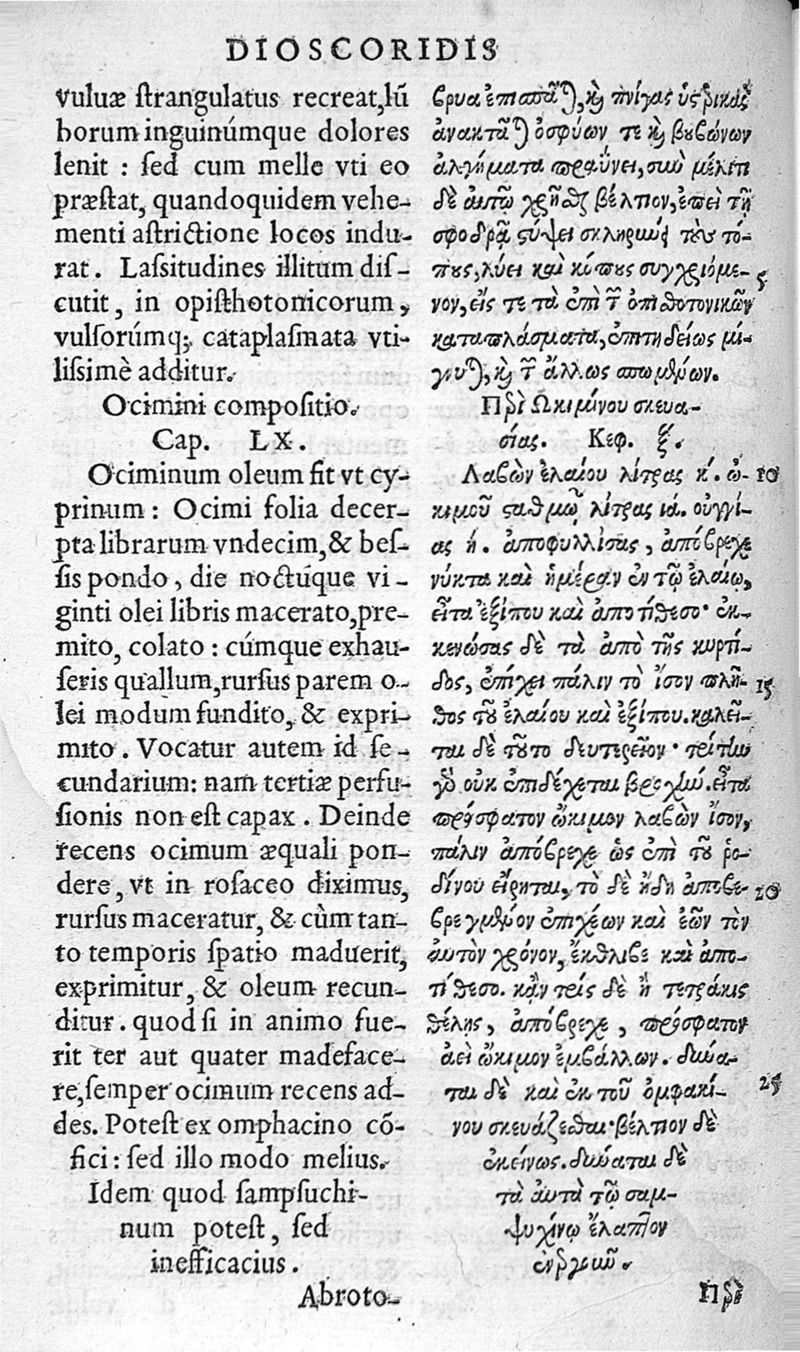 DIOSCORIDIS
vuluæ ſtrangulatus recreat,lũ
borum inguinúmque dolores
lenit : ſed cum melle vti eo
præſtat, quandoquidem vehe-
menti aſtrictione locos indu-
rat. Laſsitudines illitum diſ-
cutit, in opiſthotonicorum,
vulſorúmq; cataplaſmata vti-
liſsimè additur.
Ocimini compoſitio.
Cap. LX.
Ociminum oleum fit vt cy-
prinum : Ocimi folia decer-
pta librarum vndecim,& beſ-
ſis pondo, die noctúque vi-
ginti olei libris macerato,pre-
mito, colato : cúmque exhau-
ſeris quallum,rurſus parem o-
lei modum fundito, & expri-
mito. Vocatur autem id ſe-
cundarium: nam tertiæ perfu-
ſionis non eſt capax. Deinde
recens ocimum æquali pon-
dere, vt in roſaceo diximus,
rurſus maceratur, & cùm tan-
to temporis ſpatio maduerit,
exprimitur, & oleum recun-
ditur. quod ſi in animo fue-
rit ter aut quater madeface-
re,ſemper ocimum recens ad-
des. Poteſt ex omphacino cõ-
fici : ſed illo modo melius.
Idem quod ſampſuchi-
num poteſt, ſed
inefficacius.
Abroto-
βρυα ἐπισπᾶται, καὶ πνίγας ὑστερικὰς
ἀνακτᾶται ὀσφύων τε καὶ βουβώνων
ἀλγήματα πραΰνει, σὺν μέλιτι
δὲ αὐτῷ χρῆσθαι βέλτιον, ἐπεὶ τῇ
σφοδρᾷ στύψει σκληρύνει τοὺς τό-
πους, λύει καὶ κόπους συγχριόμε- 5
νον, εἴς τε τὰ ἐπὶ τῶν ὀπισθοτονικῶν
καταπλάσματα, ἐπιτηδείως μί-
γνυται, καὶ τῶν ἄλλως σπωμένων.
Περὶ Ὠκιμίνου σκευα-
σίας. Κεφ. ξ.
Λαβὼν ἐλαίου λίτρας κ. ὠ- 10
κιμοῦ σταθμῷ λίτρας ια. οὐγγί-
ας η. ἀποφυλλίσας, ἀπόβρεχε
νύκτα καὶ ἡμέραν ἐν τῷ ἐλαίῳ,
εἶτα ἐξίπου καὶ ἀποτίθεσο· ἐκ-
κενώσας δὲ τὰ ἀπὸ τῆς κυρτί-
δος, ἐπίχει πάλιν τὸ ἴσον πλῆ- 15
θος τοῦ ἐλαίου καὶ ἐξίπου. καλεῖ-
ται δὲ τοῦτο δευτερεῖον· τρίτην
γὰρ οὐκ ἐπιδέχεται βροχήν. εἶτα
πρόσφατον ὤκιμον λαβὼν ἴσον,
πάλιν ἀπόβρεχε ὡς ἐπὶ τοῦ ῥο-
δίνου εἴρηται, τὸ δὲ ἤδη ἀποβε- 20
βρεγμένον ἐπιχέων καὶ ἐῶν τὸν
αὐτὸν χρόνον, ἔκθλιβε καὶ ἀπο-
τίθεσο. κἂν τρὶς δὲ ἢ τετράκις
θέλῃς, ἀπόβρεχε, πρόσφατον
ἀεὶ ὤκιμον ἐμβάλλων. δύνα-
ται δὲ καὶ ἐκ τοῦ ὀμφακί- 25
νου σκευάζεσθαι· βέλτιον δὲ
ἐκείνως. δύναται δὲ
τὰ αὐτὰ τῷ σαμ-
ψυχίνῳ ἔλαττον
ἐνεργοῦν.
Περὶ